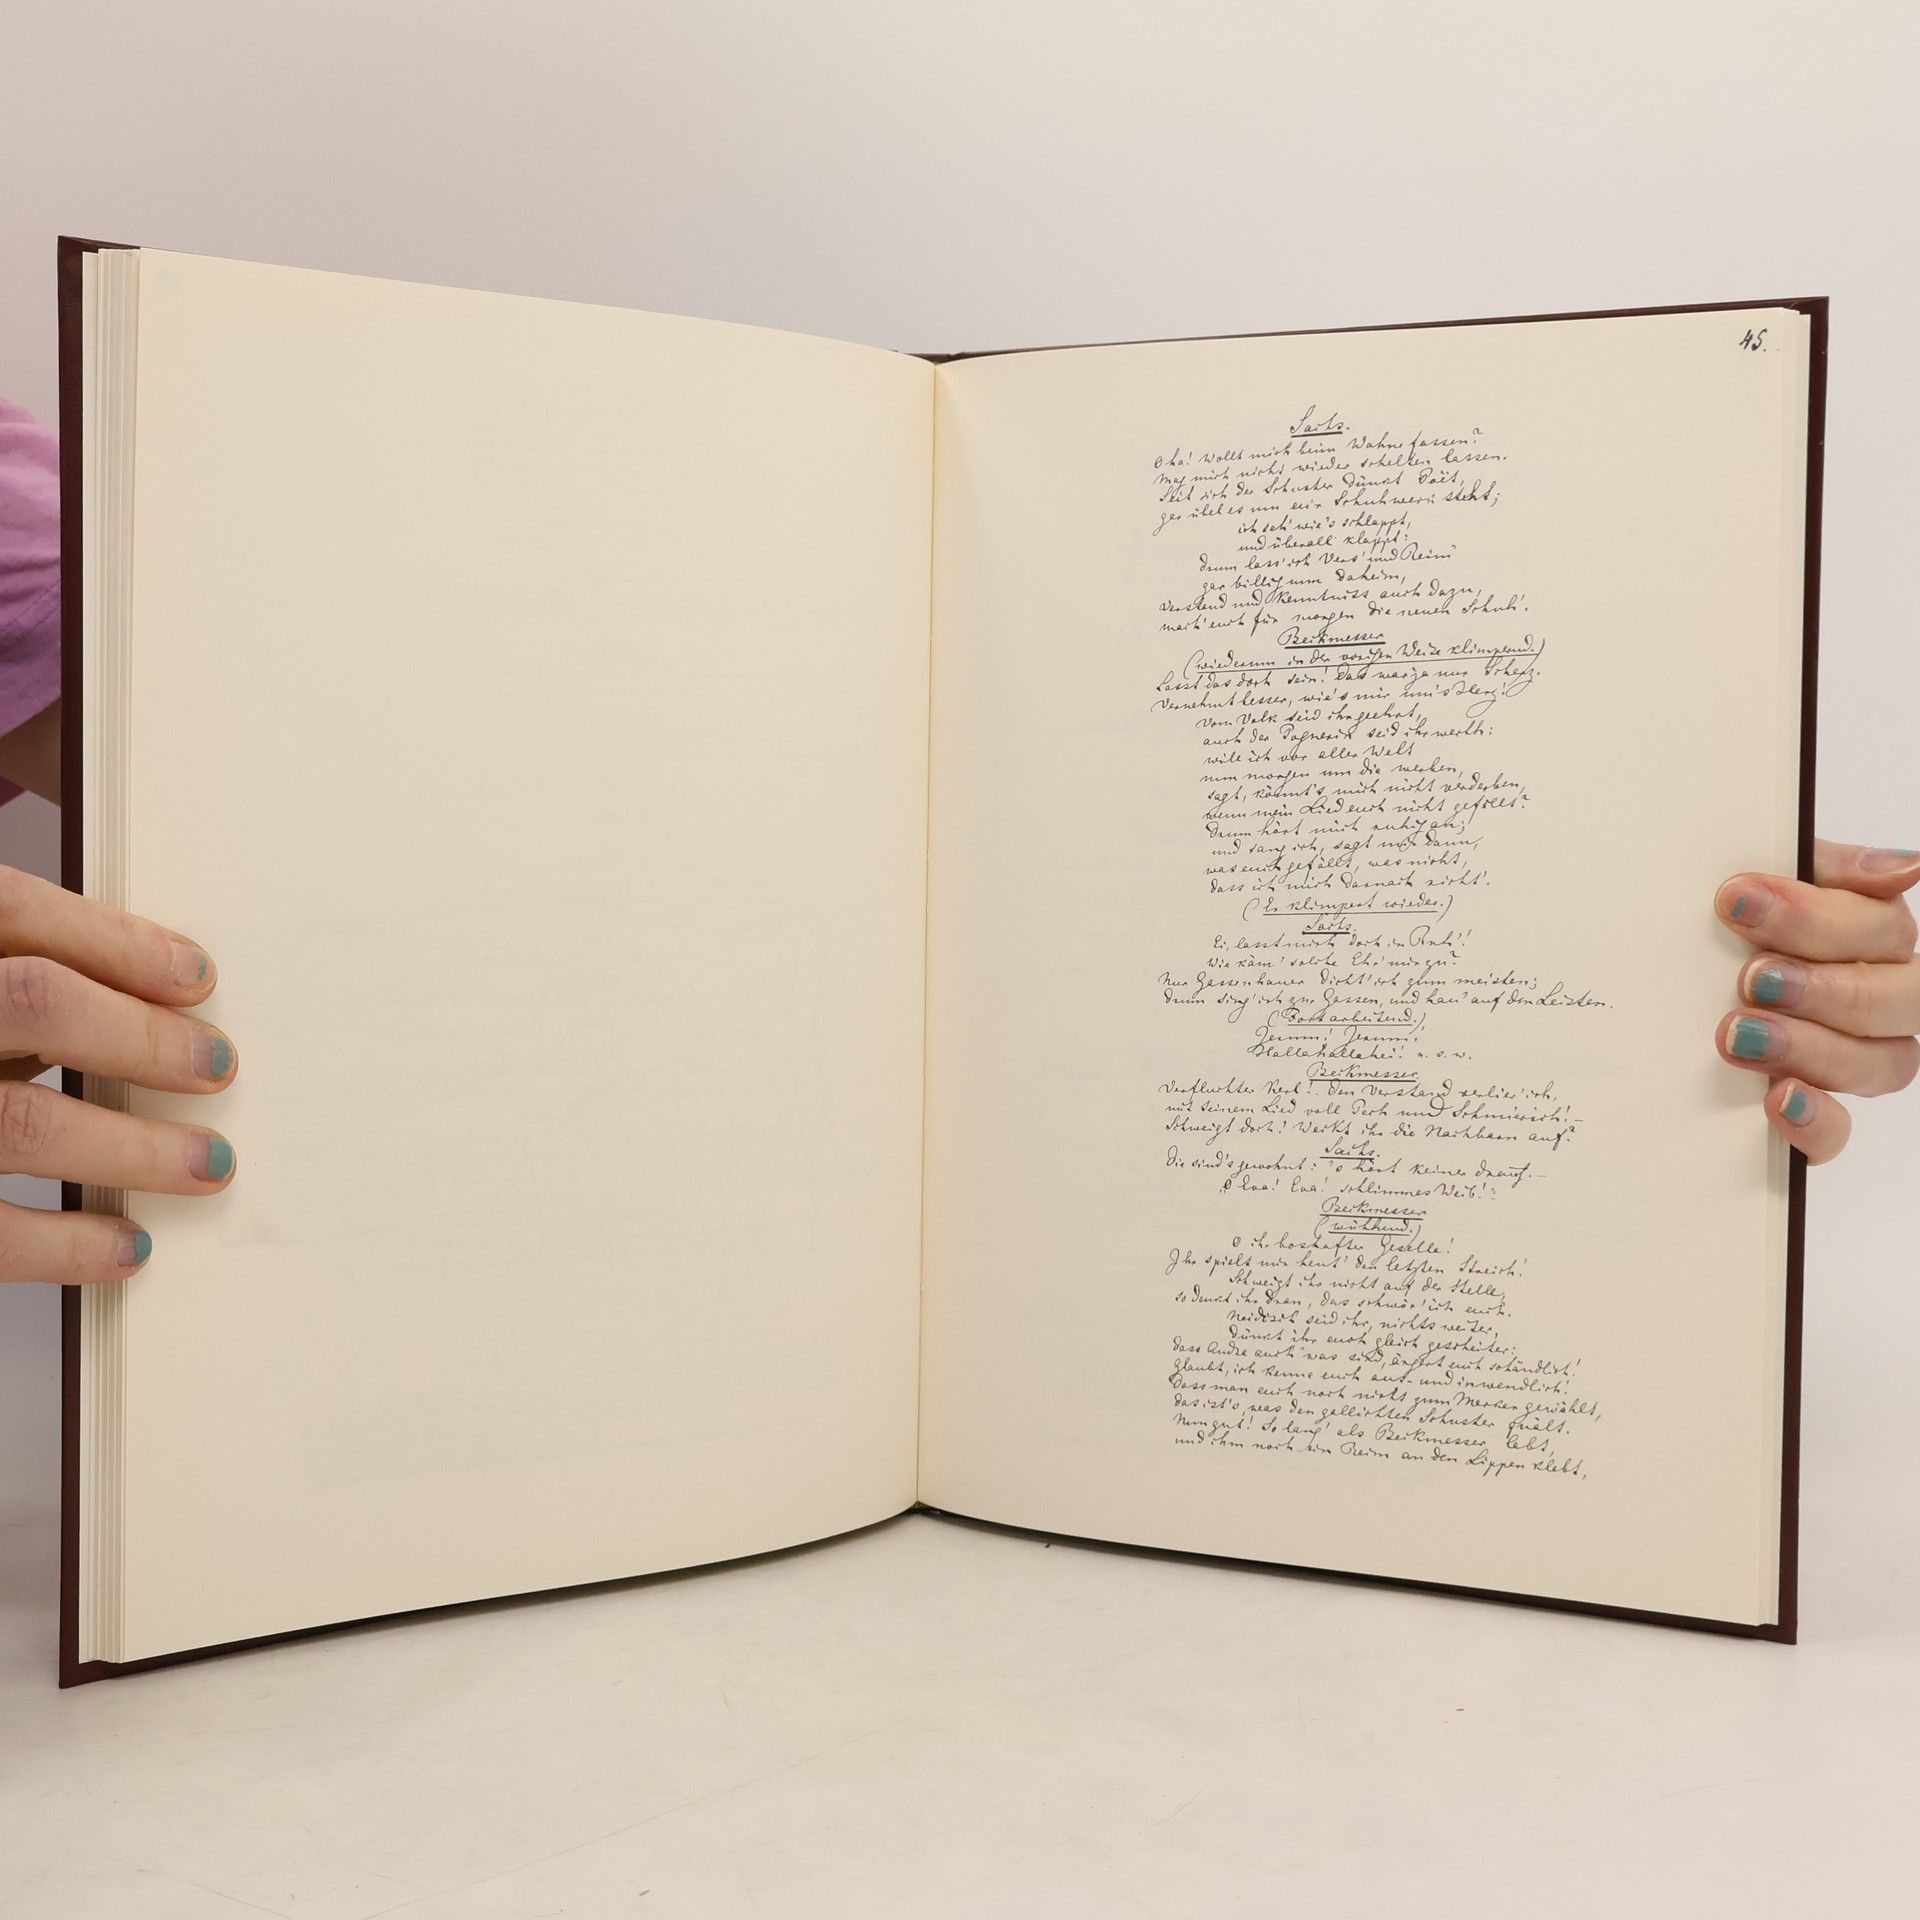 45.
Sachs.
Oha! Wollt mich beim Wahne fassen?
Mag mich nicht wieder schelten lassen.
Seit sich der Schuster dünkt Poët,
gar übel es um eu'r Schuhwerk steht;
ich seh' wie's schlappt,
und überall klappt:
drum lass' ich Vers' und Reim'
gar billig nun daheim,
Verstand und Kenntniss auch dazu,
mach' euch für morgen die neuen Schuh'.
Beckmesser
(wiederum in der vorigen Weise klimpernd.)
Lasst das doch sein! Das war ja nur Scherz.
Vernehmt besser, wie's mir um's Herz!
Vom Volk seid ihr geehrt,
auch der Pognerin seid ihr werth:
will ich vor aller Welt
nun morgen um die werben,
sagt, könnt's mich nicht verderben,
wenn mein Lied euch nicht gefällt?
Drum hört mich ruhig an;
und sang ich, sagt mir dann,
was euch gefällt, was nicht,
dass ich mich darnach richt'.
(Er klimpert wieder.)
Sachs.
Ei, lasst mich doch in Ruh'!
Wie käm' solche Ehr' mir zu?
Nur Gassenhauer dicht' ich zum meisten;
drum sing' ich zur Gassen, und hau' auf den Leisten.
(Fortarbeitend.)
Jerum! Jerum!
Hallahallahei! u. s. w.
Beckmesser.
Verfluchter Kerl! Den Verstand verlier' ich,
mit seinem Lied voll Pech und Schmierich! –
Schweigt doch! Weckt ihr die Nachbarn auf?
Sachs.
Die sind's gewohnt: 's hört keiner drauf. –
„O Eva! Eva! schlimmes Weib!"
Beckmesser
(wüthend.)
O ihr boshafter Geselle!
Ihr spielt mir heut' den letzten Streich!
Schweigt ihr nicht auf der Stelle,
so denkt ihr dran, das schwör' ich euch.
Neidisch seid ihr, nichts weiter,
dünkt ihr euch gleich gescheiter:
dass Andre auch was sind, ärgert euch schändlich!
Glaubt, ich kenne euch aus- und inwendlich!
Dass man euch noch nicht zum Merker gewählt,
das ist's, was den gallichten Schuster quält.
Nun gut! So lang' als Beckmesser lebt,
und ihm noch ein Reim an den Lippen klebt,